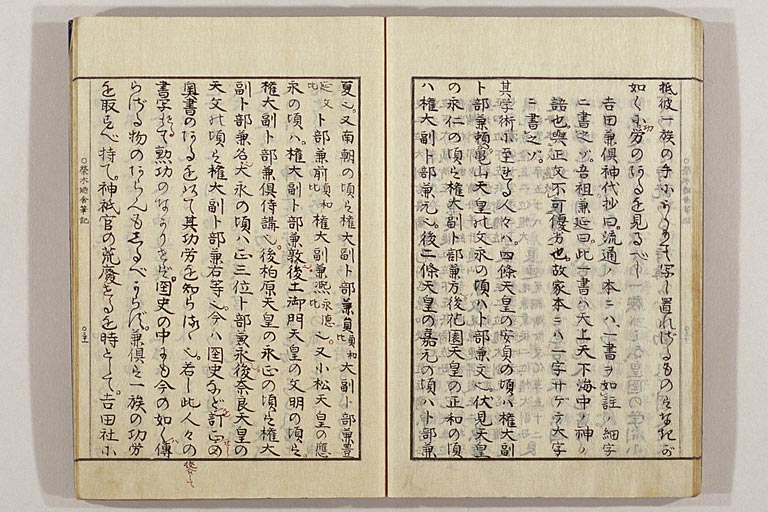 祗彼一族の手に
如く小功労のあるを見るべし
吉田兼倶神代抄曰。流通ノ本ニハ、一書ヲ如註ノ細字
ニ書之ゾ。吾祖兼延曰。此一書ハ大上天不海中ノ神ノ
諮也。與正文不可優劣也。故家本ニハ一字サゲテ大字
ニ書之ゾ。
其学術に至せる人々ハ、四條天皇の安貞の頃ハ権大副
卜部兼頼。亀山天皇の文永の頃ハ卜部兼文。伏見天皇
の永仁の頃ら権大副卜部兼方後花園天皇の正和の頃
ハ権大副卜部兼元。後二條天皇の嘉元の頃ハ卜部兼
夏。又南朝の頃ら権大副卜部兼員 貞和 比 大副卜部兼豊
延文 比 卜部兼前 貞和 比 権大副兼熈 永徳 比 。又小松天皇の應
永の頃ハ。権大副卜部兼敦後土御門天皇の文明の頃ら
権大副卜部兼倶侍講。後柏原天皇の永正の頃ら権大
副卜部兼名大永の頃ハ正三位卜部兼永後奈良天皇の
天文の頃ら権大副卜部兼右等。今ハ国史など訂正の
奥書のあるを以て其功労を知らはく。若し此人々の
書写 勲功のなかりせば国史の中にも今の如く傳
らざる物のあらんも知るべからず。兼倶ら一族の功労
を取らへ持て。神祇官の荒廃せるを時として。吉田社に